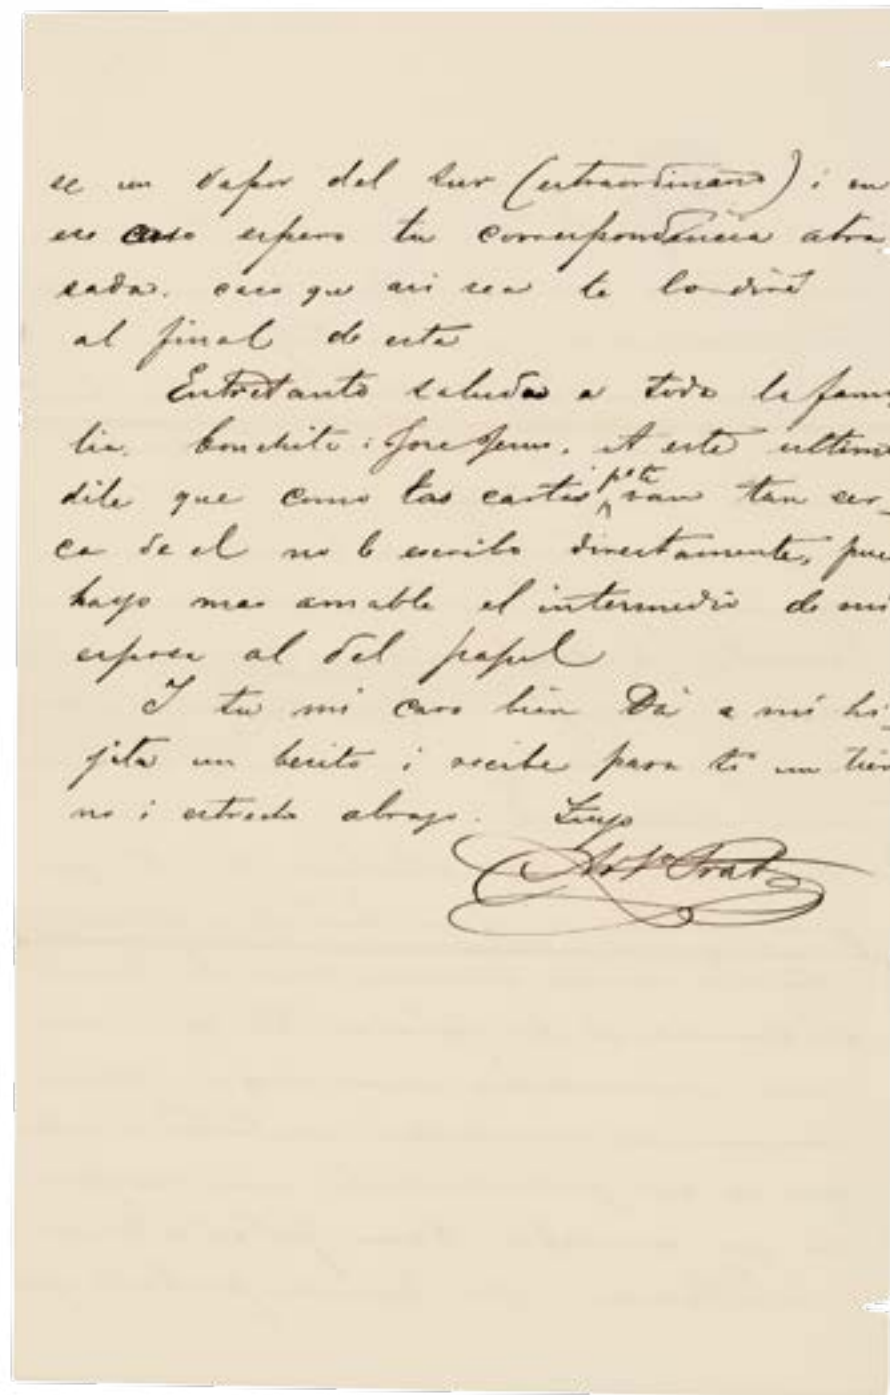 se un vapor del sur (estraordinario) i en
ese caso espero tu correspondencia atra
sada. caso que asi sea te lo diré
al final de esta
Entretanto saluda a toda la fami
lia. Conchita i José Jesus. A este ultimo
dile que como las cartas pa ti van tan cer-
ca de el no le escribo directamente, pues
hayo mas amable el intermedio de mi
esposa al del papel
I tu mi caro bien Dá a mi hi-
jita un besito i recibe para ti un tier
no i estrecho abrazo. Tuyo
Arto Prat